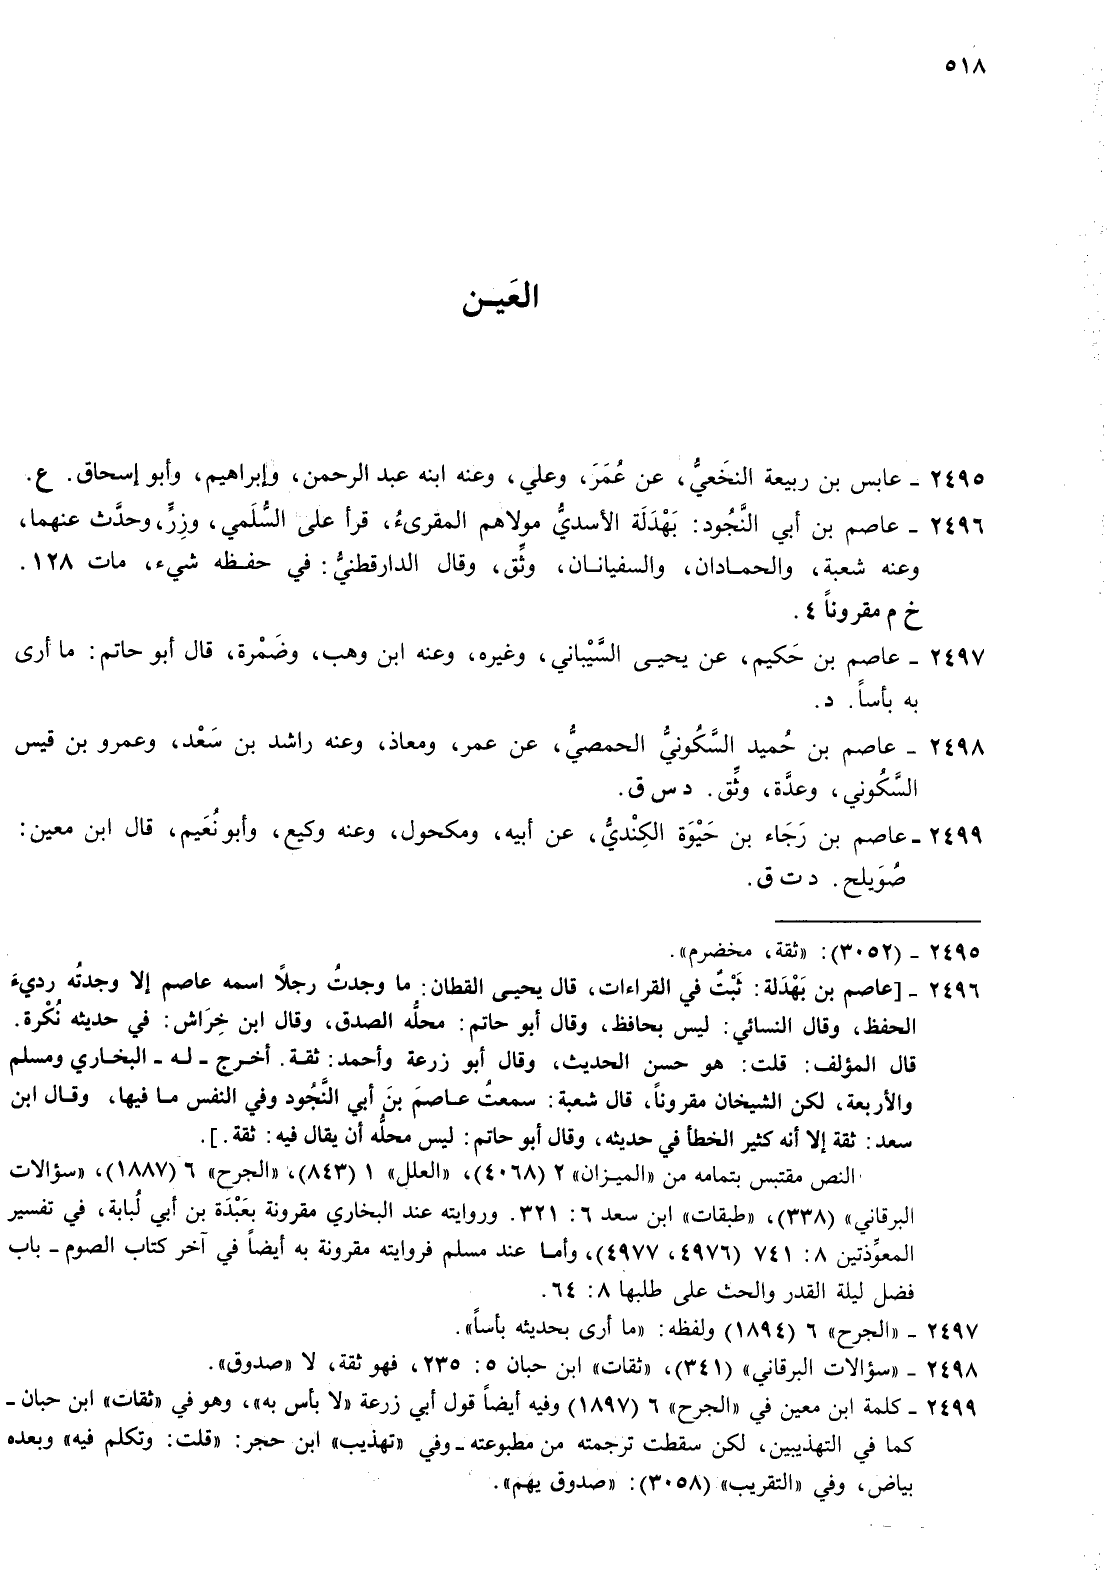 ٥١٨
العَيـن
٢٤٩٥ ـ عابس بن ربيعة النخَعيُّ، عن عُمَرَ، وعلي، وعنه ابنه عبد الرحمن، وإبراهيم، وأبو إسحاق. ع.
٢٤٩٦ ـ عاصم بن أبي النَّجُود: بَهْدَلَة الأسديُّ مولاهم المقرىءُ، قرأ على السُّلَمي، وزِرٍّ، وحدَّث عنهما،
وعنه شعبة، والحمـادان، والسفيانـان، وثِّق، وقال الدارقطنيُّ: في حفـظه شيء، مات ١٢٨.
خ م مقروناً ٤.
٢٤٩٧ ـ عاصم بن حَكيم، عن يحيـى السَّيْباني، وغيره، وعنه ابن وهب، وضَمْرة، قال أبو حاتم: ما أرى
به بأساً. د.
٢٤٩٨ ـ عاصم بن حُميد السَّكُونيُّ الحمصيُّ، عن عمر، ومعاذ، وعنه راشد بن سَعْد، وعمرو بن قيس
السَّكُوني، وعدَّة، وثِّق. د س ق.
٢٤٩٩ ـ عاصم بن رَجَاء بن حَيْوَة الكِنْديُّ، عن أبيه، ومكحول، وعنه وكيع، وأبو نُعَيم، قال ابن معين:
صُوَيلح. د ت ق.
٢٤٩٥ ـ (٣٠٥٢): «ثقة، مخضرم».
٢٤٩٦ ـ [عاصم بن بَهْدَلة: ثَبْتٌ في القراءات، قال يحيـى القطان: ما وجدتُ رجلاً اسمه عاصم إلا وجدتُه رديءَ
الحفظ، وقال النسائي: ليس بحافظ، وقال أبو حاتم: محلُّه الصدق، وقال ابن خِرَاش: في حديثه نُكْرة.
قال المؤلف: قلت: هو حسن الحديث، وقال أبو زرعة وأحمد: ثقـة. أخـرج ـ لـه ـ البخـاري ومسلم
والأربعة، لكن الشيخان مقروناً، قال شعبة: سمعتُ عـاصمَ بنَ أبي النَّجُود وفي النفس مـا فيها، وقـال ابن
سعد: ثقة إلا أنه كثير الخطأ في حديثه، وقال أبو حاتم: ليس محلُّه أن يقال فيه: ثقة.].
النص مقتبس بتمامه من «الميـزان» ٢ (٤٠٦٨)، «العلل» ١ (٨٤٣)، «الجرح» ٦ (١٨٨٧)، «سؤالات
البرقاني» (٣٣٨)، «طبقات» ابن سعد ٦: ٣٢١. وروايته عند البخاري مقرونة بعَبْدَة بن أبي لُبابة، في تفسير
المعوِّذتين ٨: ٧٤١ (٤٩٧٦، ٤٩٧٧)، وأمـا عند مسلم فروايته مقرونة به أيضاً في آخر كتاب الصوم ـ باب
فضل ليلة القدر والحث على طلبها ٨: ٦٤.
٢٤٩٧ ـ «الجرح» ٦ (١٨٩٤) ولفظه: «ما أرى بحديثه بأساً».
٢٤٩٨ ـ «سؤالات البرقاني» (٣٤١)، «ثقات» ابن حبان ٥: ٢٣٥، فهو ثقة، لا «صدوق».
٢٤٩٩ ـ كلمة ابن معين في «الجرح» ٦ (١٨٩٧) وفيه أيضاً قول أبي زرعة «لا بأس به»، وهو في «ثقات» ابن حبان ـ
كما في التهذيبين، لكن سقطت ترجمته من مطبوعته ـ وفي «تهذيب» ابن حجر: «قلت: وتكلم فيه» وبعده
بياض، وفي «التقريب» (٣٠٥٨): «صدوق يهم».